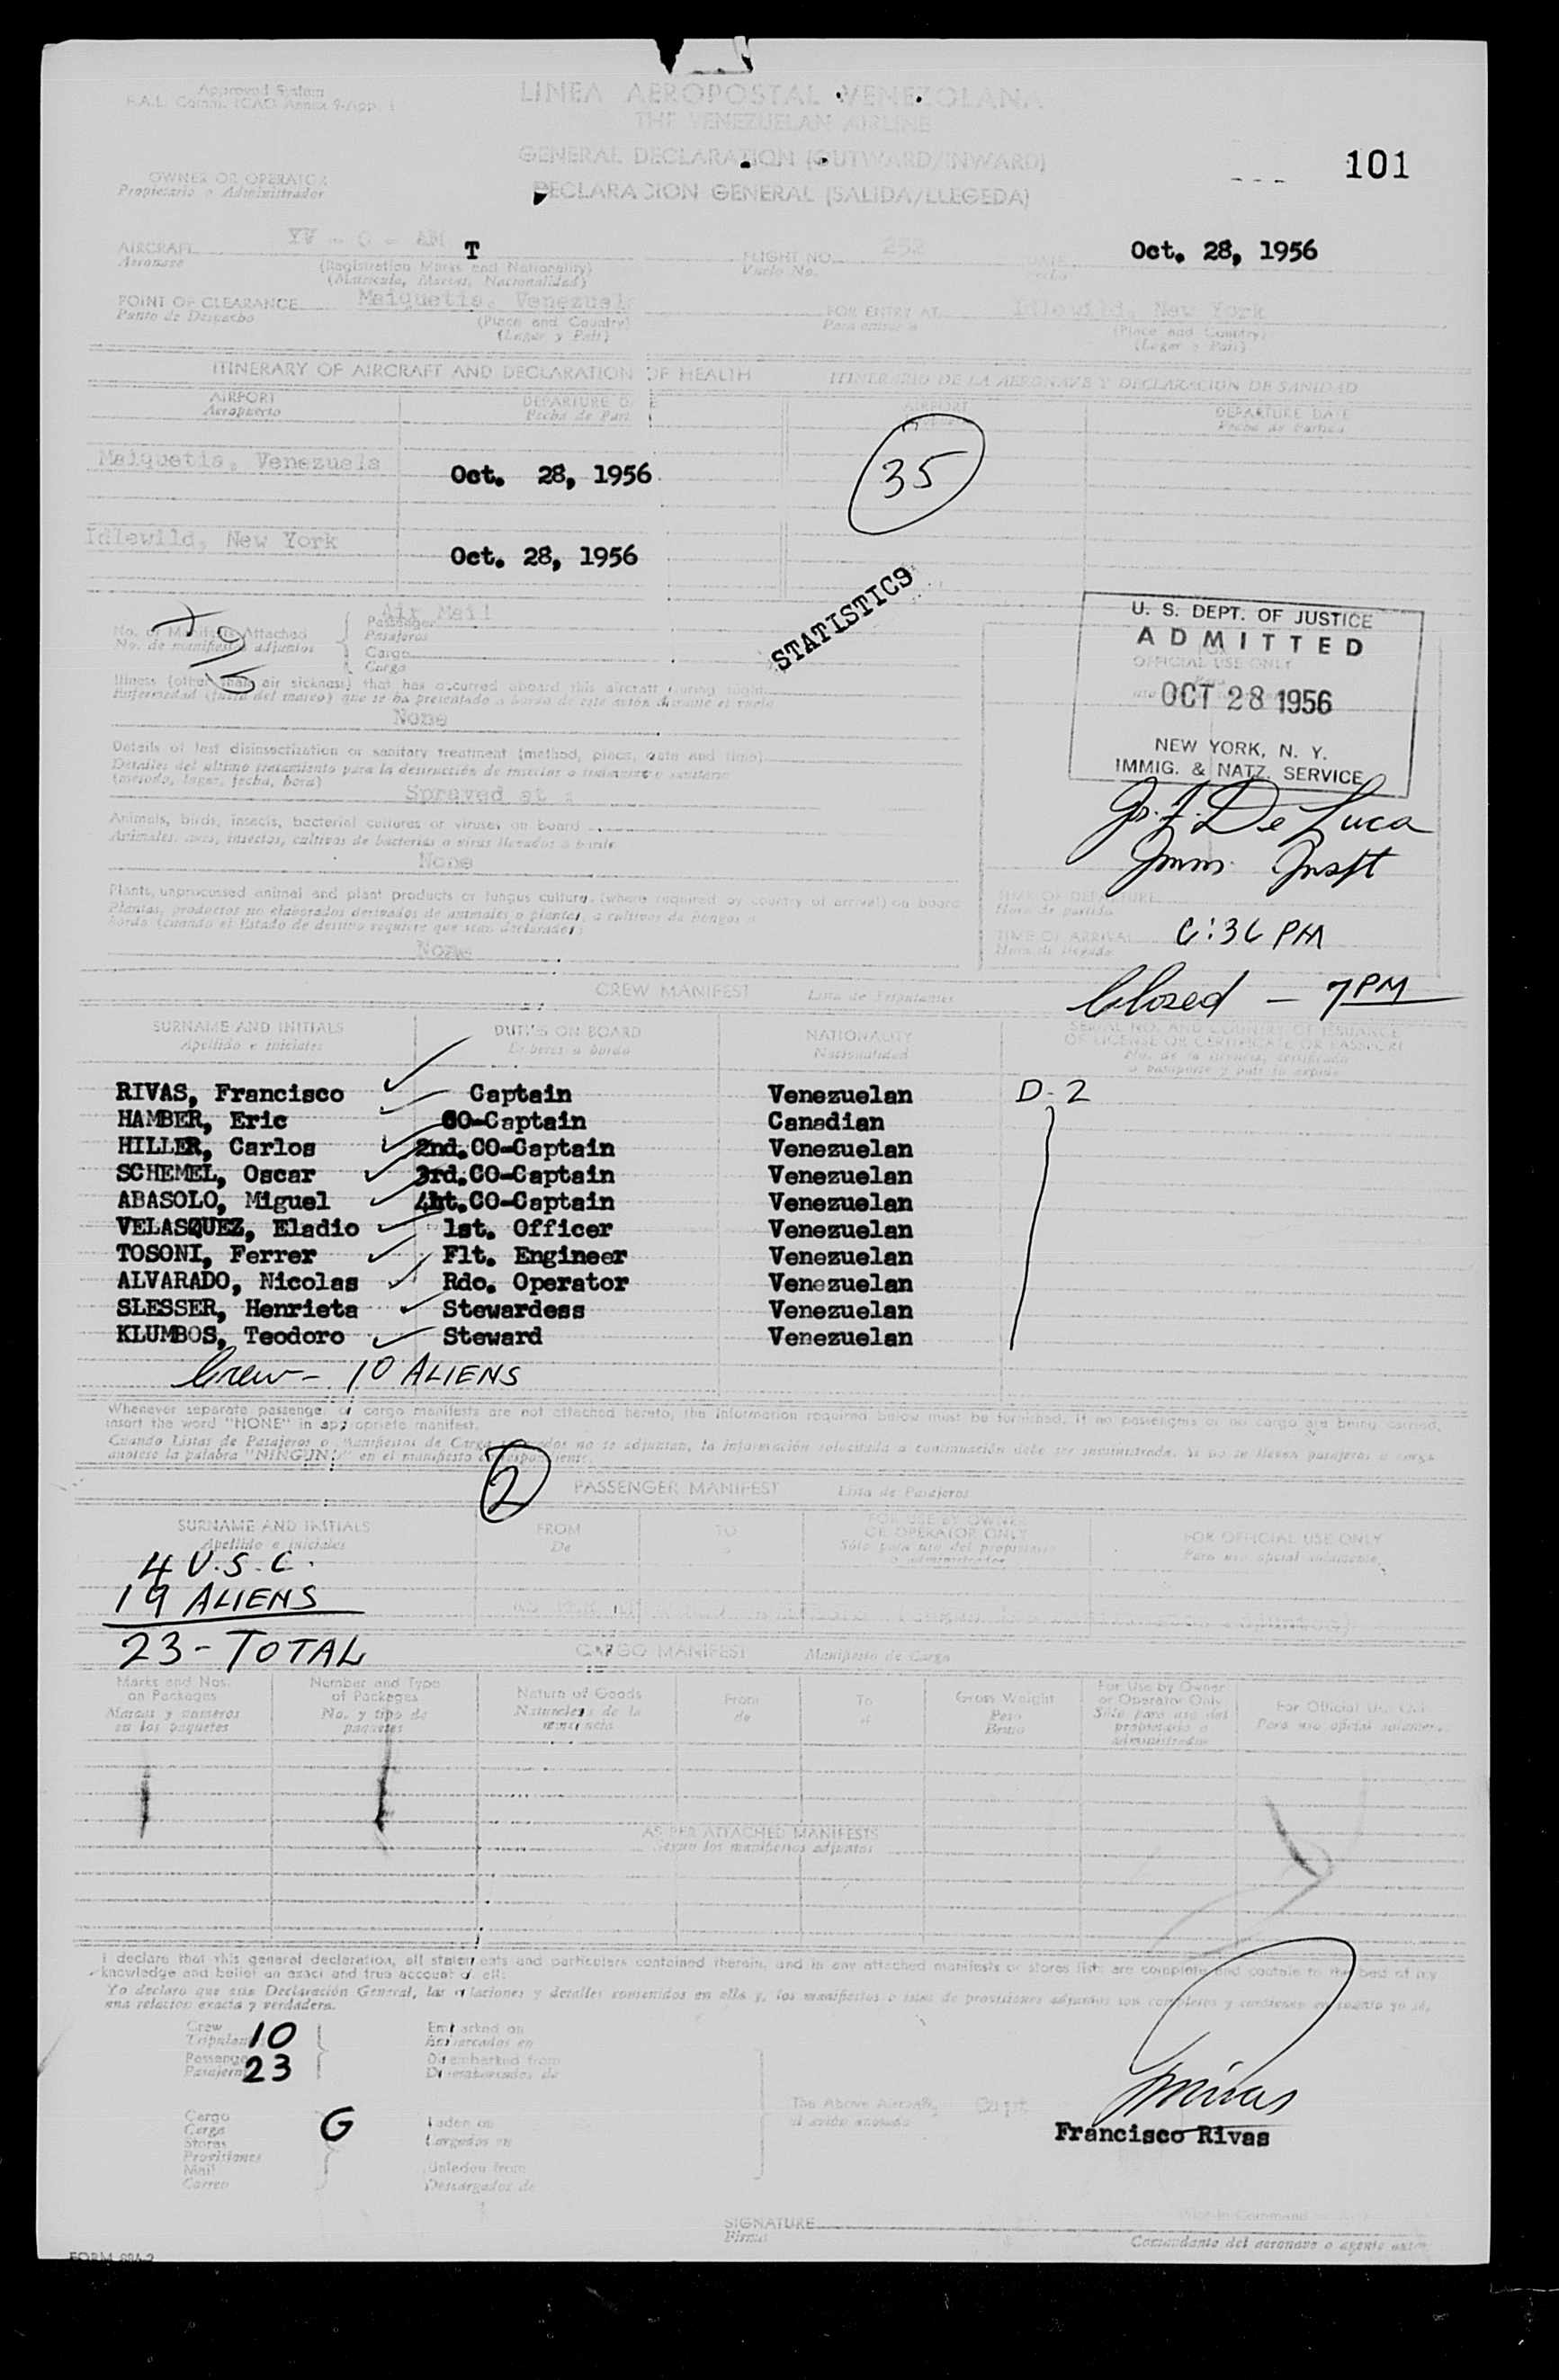 Approved System
F.A.L. Comm. ICAO Annex 9-App. 1
LINEA AEROPOSTAL VENEZOLANA
THE VENEZUELAN AIRLINE
GENERAL DECLARATION (OUTWARD/INWARD)
DECLARACION GENERAL (SALIDA/LLEGEDA)
101
OWNER OR OPERATOR
Propietario o Administrador
AIRCRAFT YV - C - AM T
Aeronave
(Registration Marks and Nationality)
(Matricula, Marcas, Nacionalidad)
FLIGHT NO. 252
Vuelo No.
Oct. 28, 1956
POINT OF CLEARANCE Maiquetia, Venezuela
Punto de Despacho
(Place and Country)
(Lugar y Pais)
FOR ENTRY AT Idlewild, New York
Para entrar a
(Place and Country)
(Lugar y Pais)
ITINERARY OF AIRCRAFT AND DECLARATION OF HEALTH
ITINERARIO DE LA AERONAVE Y DECLARACION DE SANIDAD
AIRPORT
Aeropuerto
DEPARTURE D E
Fecha de Part
AIRPORT
DEPARTURE DATE
Fecha de Partida
Maiquetia, Venezuela Oct. 28, 1956
35
Idlewild, New York Oct. 28, 1956
STATISTICS
Air Mail
No. of Manifests Attached
No. de manifiestos adjuntos
Passenger
Pasajeros
Cargo
Carga
U. S. DEPT. OF JUSTICE
ADMITTED
OFFICIAL USE ONLY
OCT 28 1956
NEW YORK, N. Y.
IMMIG. & NATZ. SERVICE
Illness (other than air sickness) that has occurred aboard this aircraft during flight
Enfermedad (fuera del mareo) que se ha presentado a bordo de este avión durante el vuelo
None
Details of last disinsectization or sanitary treatment (method, place, date and time)
Detalles del ultimo tratamiento para la destrucción de insectos o tratamiento sanitario
(metodo, lugar, fecha, hora)
Sprayed at
Animals, birds, insects, bacterial cultures or viruses on board
Animales, aves, insectos, cultivos de bacterias o virus llevados a bordo
None
De Luca
Imm. Inspt
Plants, unprocessed animal and plant products or fungus culture, (where required by country of arrival) on board
Plantas, productos no elaborados derivados de animales o plantas, o cultivos de hongos a
bordo (cuando el Estado de destino requiere que sean declarados)
None
TIME OF DEPARTURE
Hora de partida
TIME OF ARRIVAL 6:36 PM
Hora de llegada
Closed - 7 PM
CREW MANIFEST Lista de Tripulantes
SURNAME AND INITIALS
Apellido e iniciales
DUTIES ON BOARD
Deberes a bordo
NATIONALITY
Nacionalidad
SERIAL NO. AND COUNTRY OF ISSUANCE
OF LICENSE OR CERTIFICATE OR PASSPORT
No. de la licencia, certificado
o pasaporte y pais
RIVAS, Francisco Captain Venezuelan D-2
HAMBER, Eric CO-Captain Canadian
HILLER, Carlos 2nd.CO-Captain Venezuelan
SCHEMEL, Oscar 3rd.CO-Captain Venezuelan
ABASOLO, Miguel 4ht.CO-Captain Venezuelan
VELASQUEZ, Eladio 1st. Officer Venezuelan
TOSONI, Ferrer Flt. Engineer Venezuelan
ALVARADO, Nicolas Rdo. Operator Venezuelan
SLESSER, Henrieta Stewardess Venezuelan
KLUMBOS, Teodoro Steward Venezuelan
Crew - 10 ALIENS
Whenever separate passenger or cargo manifests are not attached hereto, the information required below must be furnished. If no passengers or no cargo are being carried,
insert the word "NONE" in appropriate manifest.
Cuando Listas de Pasajeros o Manifiestos de Carga no se adjuntan, la información solicitada a continuación debe ser suministrada. Si no se llevan pasajeros o carga
anotese la palabra "NINGUN" en el manifiesto correspondiente.
2
PASSENGER MANIFEST Lista de Pasajeros
SURNAME AND INITIALS
Apellido e iniciales
FROM
De
TO
FOR USE BY OWNER
OR OPERATOR ONLY
Sólo para uso del propietario
o administrador
FOR OFFICIAL USE ONLY
Para uso oficial solamente
4 U.S.C.
19 ALIENS
23 - TOTAL
CARGO MANIFEST Manifiesto de Carga
Marks and Nos.
on Packages
Marcas y numeros
en los paquetes
Number and Type
of Packages
No. y tipo de
paquetes
Nature of Goods
Naturaleza de la
mercancia
From
de
To
a
Gross Weight
Peso
Bruto
For Use by Owner
or Operator Only
Sólo para uso del
propietario o
administrador
For Official Use Only
Para uso oficial solamente
AS PER ATTACHED MANIFESTS
Según los manifiestos adjuntos
I declare that this general declaration, all statements and particulars contained therein, and in any attached manifests or stores lists are complete and contain to the best of my
knowledge and belief an exact and true account of all.
Yo declaro que esta Declaración General, las relaciones y detalles contenidos en ella y, los manifiestos o listas de provisiones adjuntos son completos y contienen en cuanto yo sé,
una relacion exacta y verdadera.
Crew
Tripulantes 10
Passengers
Pasajeros 23
Embarked on
Embarcados en
Disembarked from
Desembarcados de
Cargo
Carga
Stores
Provisiones
Mail
Correo
G
Laden on
Cargados en
Unladen from
Descargados de
The Above Aircraft,
el avión anotado
Capt
Francisco Rivas
SIGNATURE
Firma
Comandante del aeronave o agente
FORM 886-2